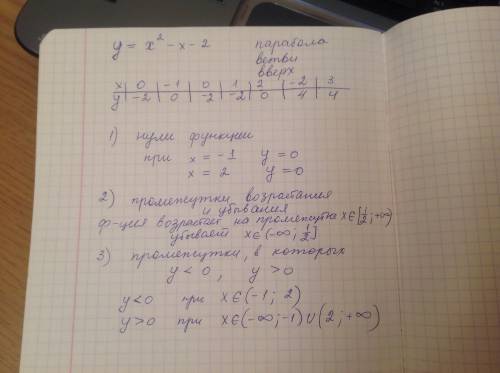 y = x² - x - 2 парабола
ветви
вверх
x | 0 | -1 | 0 | 1 | 2 | -2 | 3
y | -2 | 0 | -2 | -2 | 0 | 4 | 4
1) нули функции
при x = -1 y = 0
x = 2 y = 0
2) промежутки возрастания
и убывания
ф-ция возрастает на промежутке x∈[1/2; +∞)
убывает x∈(-∞; 1/2]
3) промежутки, в которых
y < 0, y > 0
y<0 при x∈(-1; 2)
y>0 при x∈(-∞; -1)∪(2; +∞)